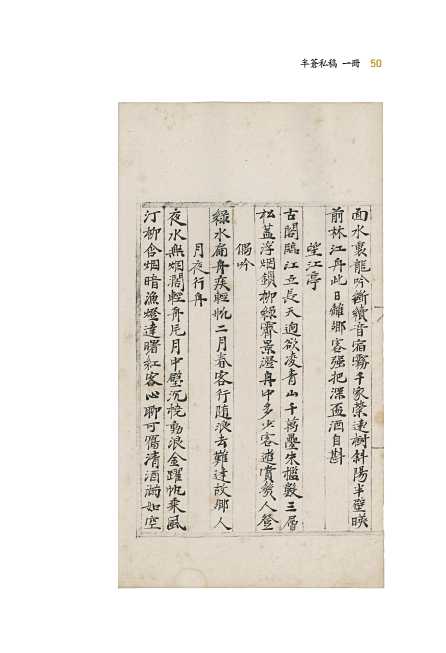 半蒼私稿 一冊 50
面水裏龍吟斷續音宿霧千家縈遠樹斜陽半壁暎
前林江舟此日離鄉客强把深盃酒自斟
望江亭
古閣臨江立長天迥欲凌青山千萬疊朱檻數三層
松蓋浮烟鎖柳綠霽景澄舟中多少客遊賞幾人登
偶吟
綠水扁舟疾輕帆二月春客行随浪去難達故鄉人
月夜行舟
夜水無烟濶輕舟月中壁沉橈動浪金躍帆乘風
汀柳含烟暗漁燈達曙紅客心聊可寫清酒滿如空